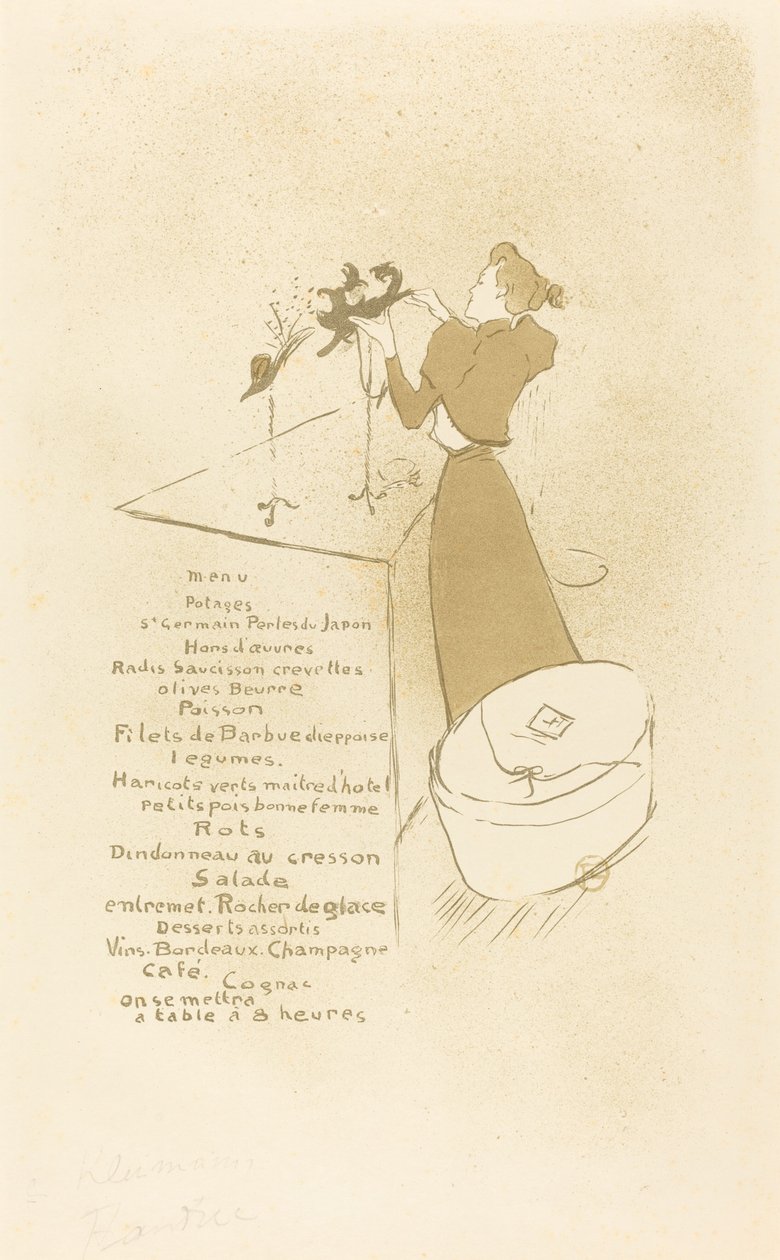 menu
Potages
St Germain Perles du Japon
Hors d'œuvres
Radis Saucisson crevettes.
olives Beurre
Poisson
Filets de Barbue dieppoise
legumes.
Haricots verts maitre d'hotel
petits pois bonne femme
Rots
Dindonneau au cresson
Salade
entremet. Rocher de glace
Desserts assortis
Vins. Bordeaux. Champagne
café.
Cognac
on se mettra
a table à 8 heures